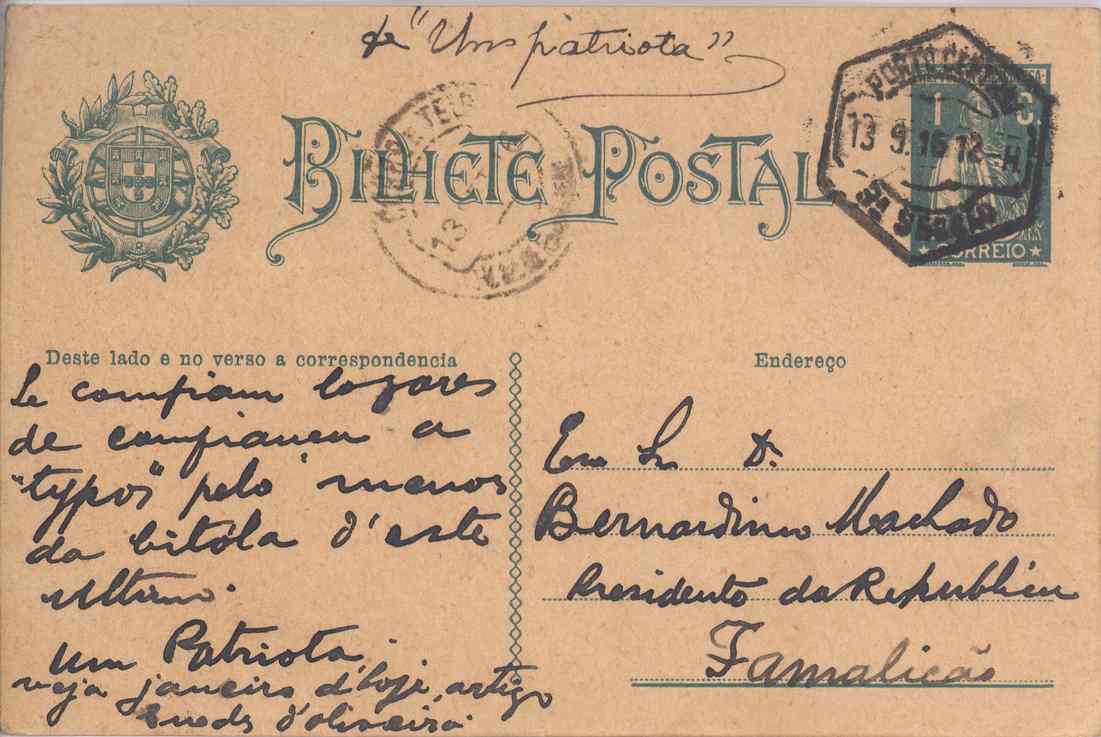 de "Uns patriota"
BILHETE POSTAL
PORTO CENTRAL
13 9.16 12-H
5ª SECÇÃO
1 C.
CORREIO
13
Deste lado e no verso a correspondencia
Se comfiam logares
de comfianca a
"typos" pelo menos
da bitóla d'este
ultimo.
Um Patriota,
veja janeiro d'hoje, artigo
d'oliveira.
Endereço
Exmo Sr. D.
Bernardino Machado
Presidente da Republica
Famalicão